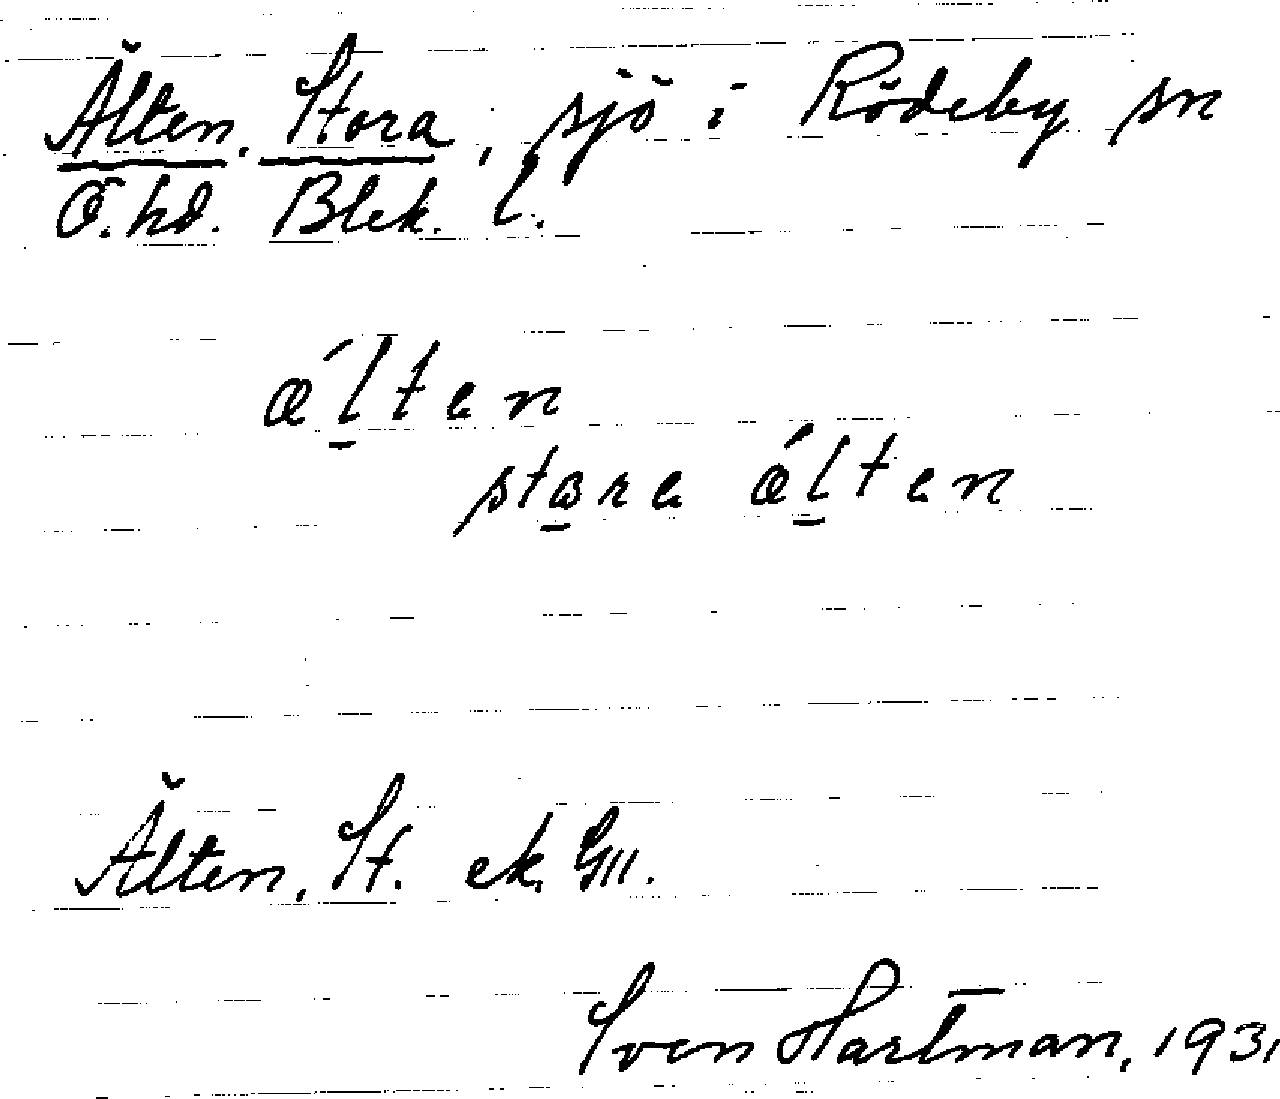 Älten, Stora, sjö i Rödeby sn
Ö. hd. Blek. l.
ǽl̲ten
sto̲re ǽl̲ten
Älten, St. ek. GII.
Sven Hartman, 1931